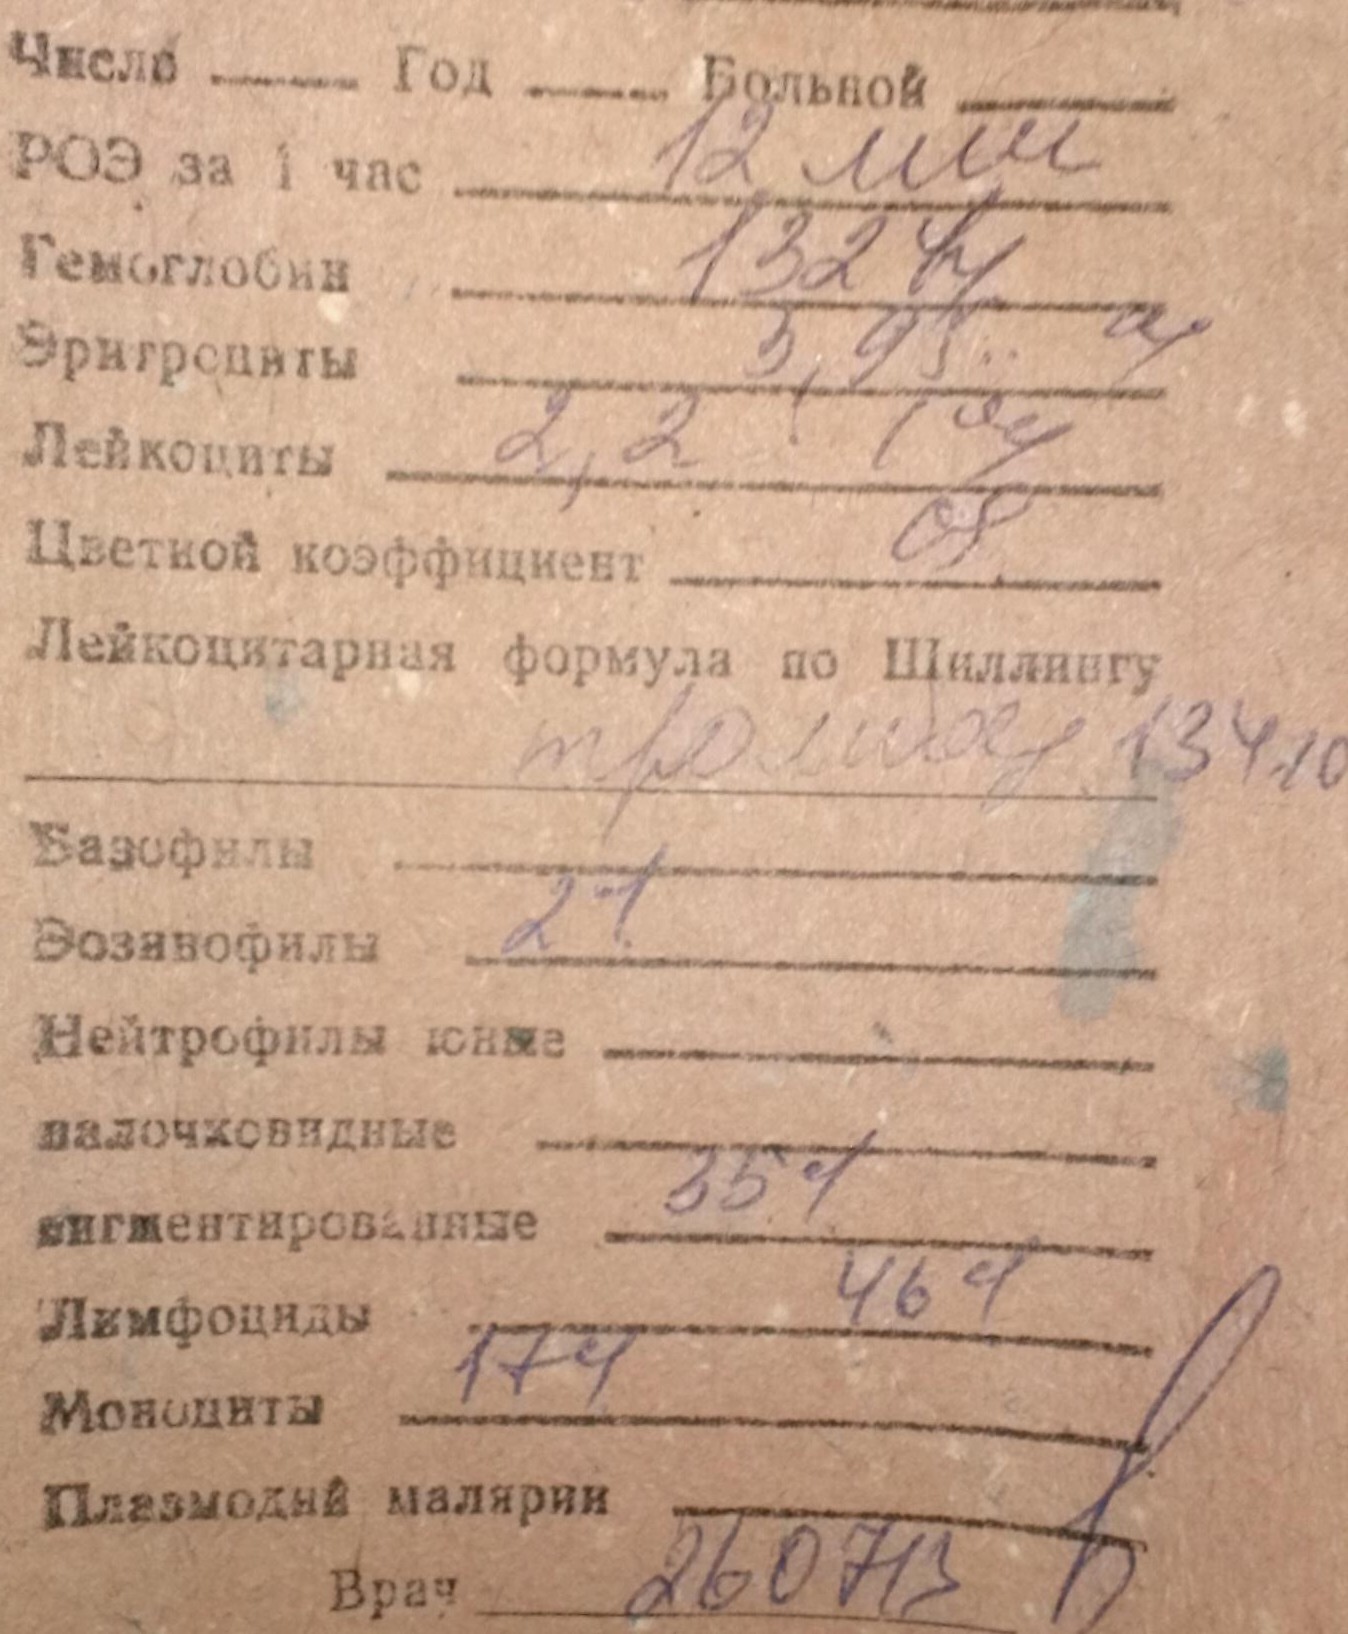 Число Год Больной
РОЭ за 1 час 12 мм
Гемоглобин 132
Эритроциты 3,95
Лейкоциты 2,2
Цветной коэффициент
Лейкоцитарная формула по Шиллингу
134.10
Базофилы
Эозинофилы 2
Нейтрофилы юные
палочковидные
сигментированные 35
Лимфоциды 46
Моноциты 17
Плазмодий малярии
Врач 260713